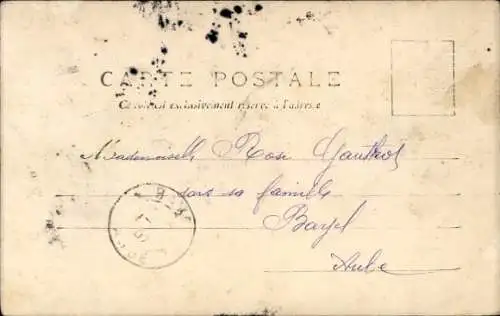 CARTE POSTALE
Ce côté est exclusivement réservé à l'adresse
Mademoiselle Rose Gauthrot
dans sa famille
Bayel
Aube